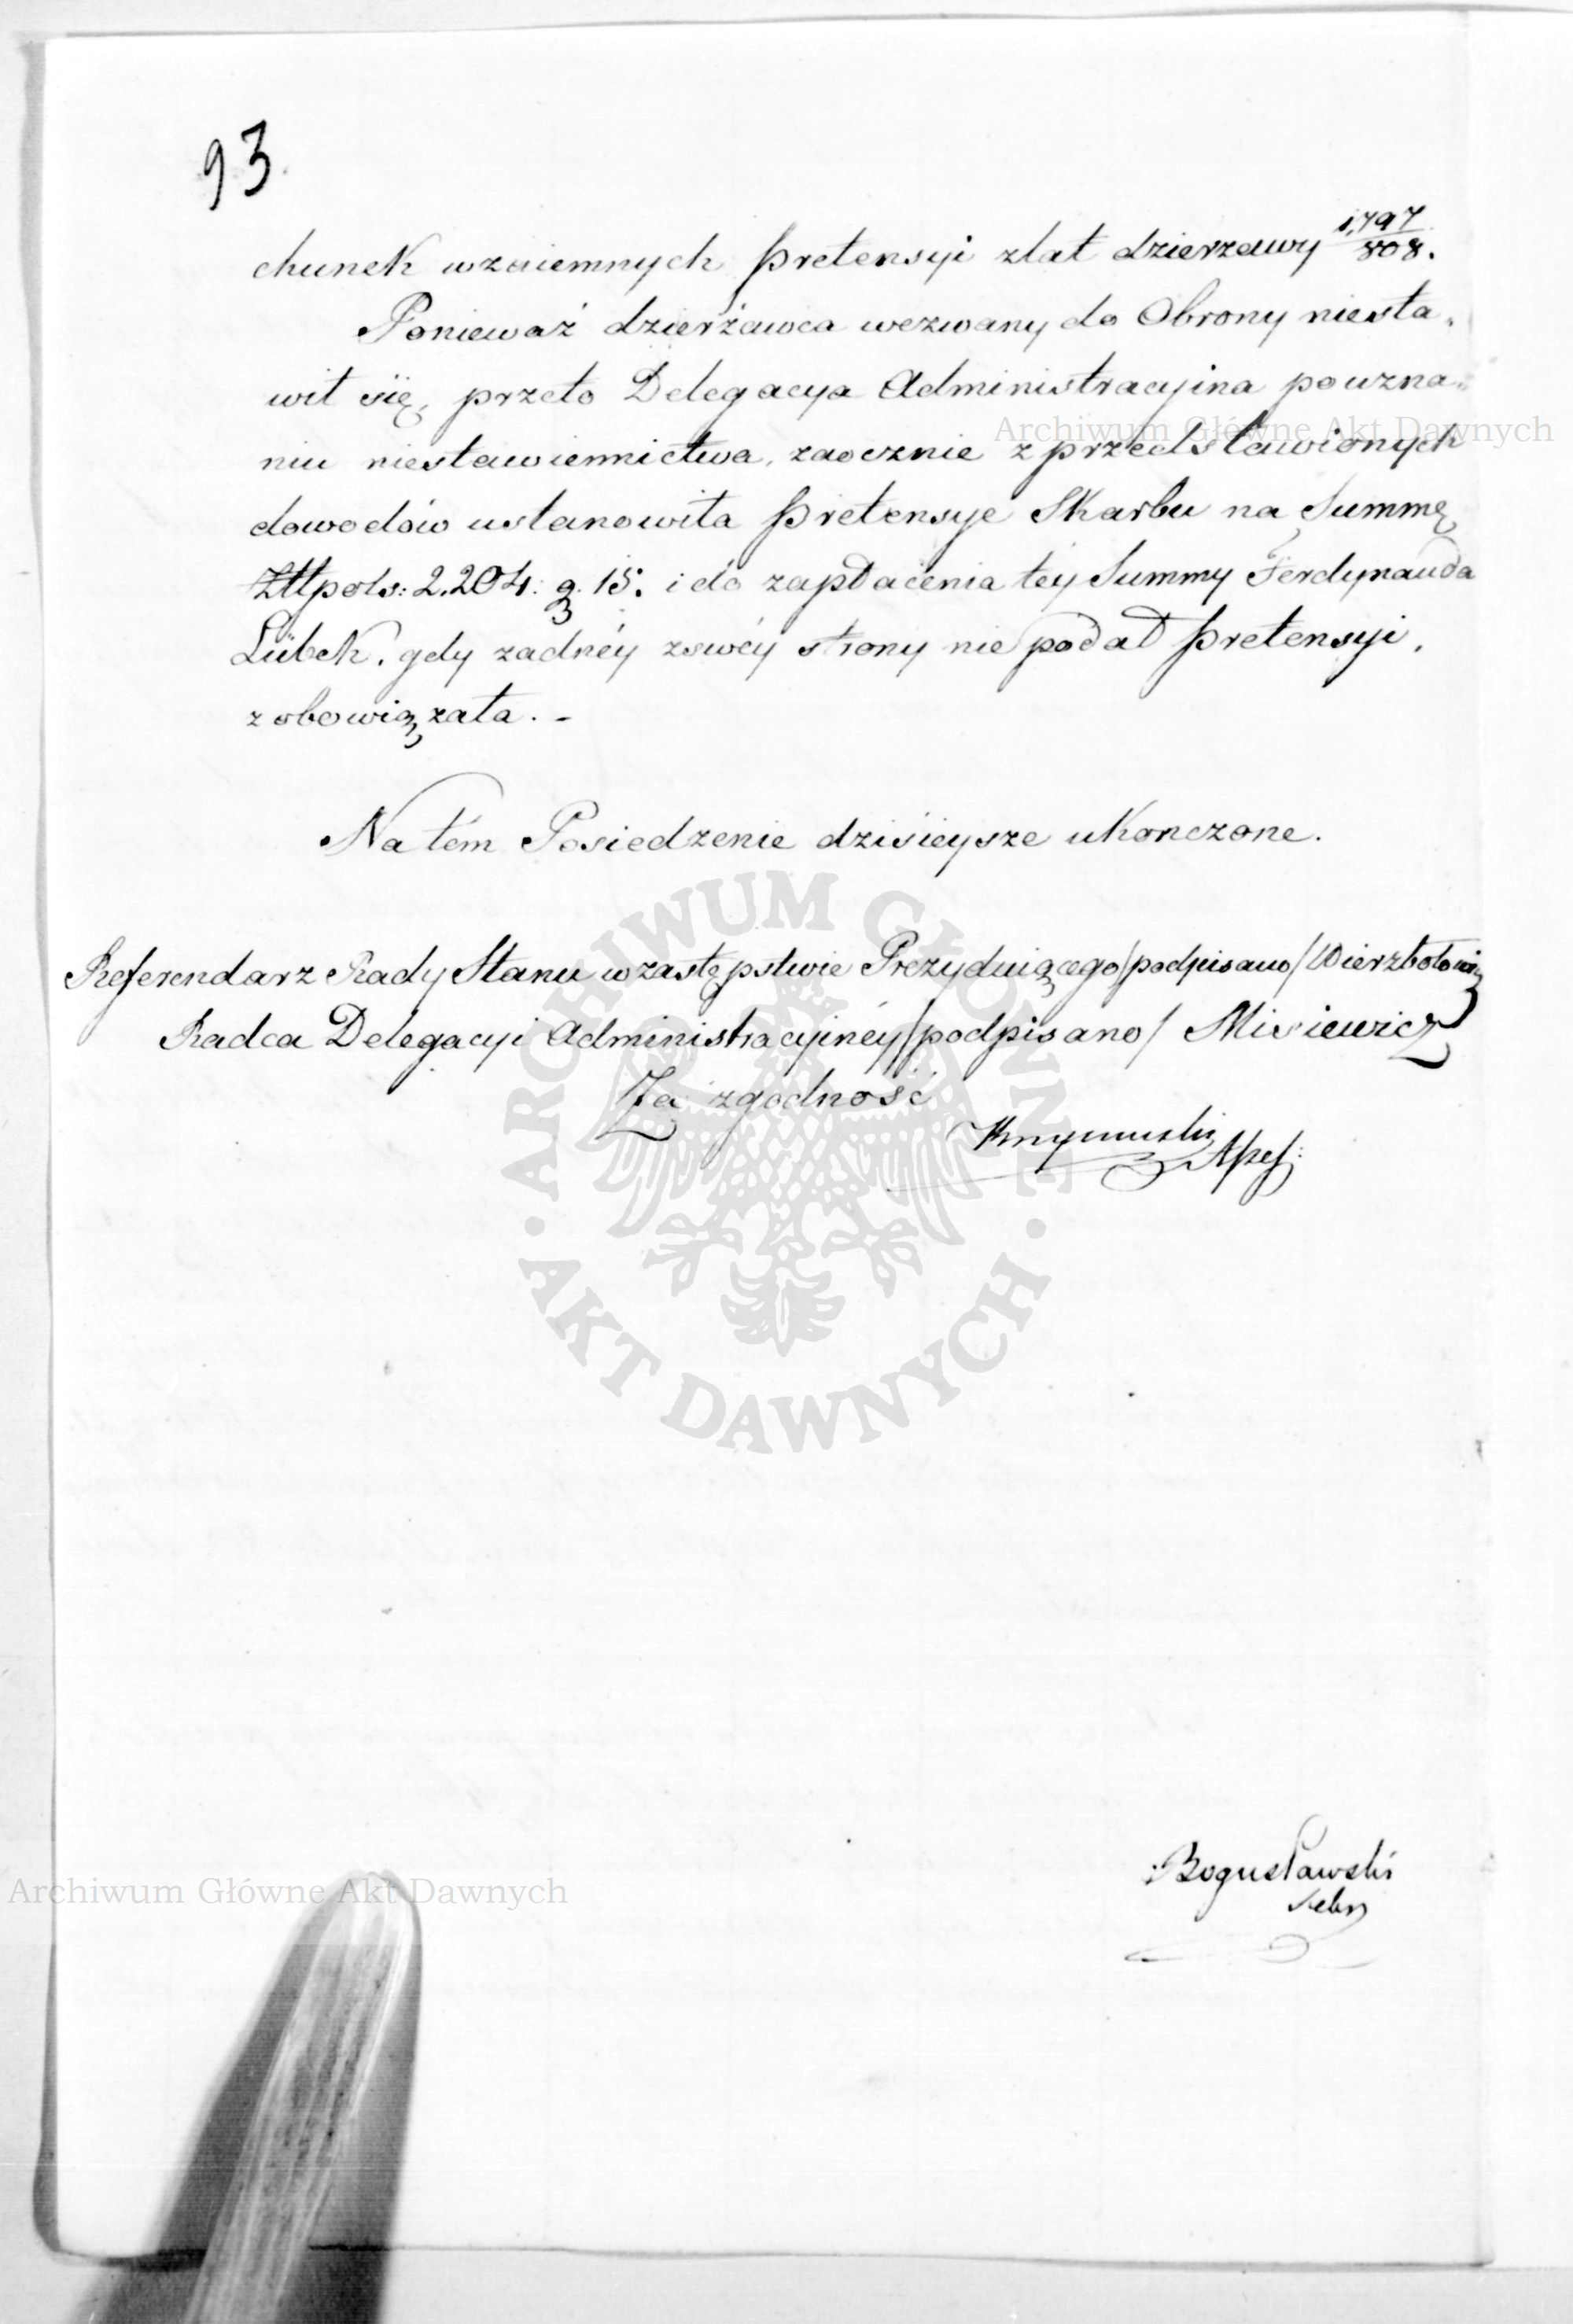 93.
chunek wzaiemnych pretensyi zlat dzierzawy 1,797/808.
Ponieważ dzierżawca wezwany do Obrony niesta-
wił się, przeto Delegacya Administracyina po uzna-
niu niestawiennictwa, zaocznie z przedstawionych
Archiwum Główne Akt Dawnych
dowodów ustanowiła pretensye Skarbu na Summę
Złłpols: 2,204: g. 15. i do zapłacenia téy Summy Ferdynanda
Lübek, gdy zadnéy zswéy strony nie podał pretensyi,
zobowiązała. -
Na tém Posiedzenie dzisieysze ukonczone.
Referendarz Rady Stanu w zastępstwie Prezyduiącego /podpisano/
Radca Delegacyi Administracyinéy /podpisano/ Misiewicz
Za zgodność
ARCHIWUM GŁÓWNE
· AKT DAWNYCH ·
Bogusławski
Archiwum Główne Akt Dawnych